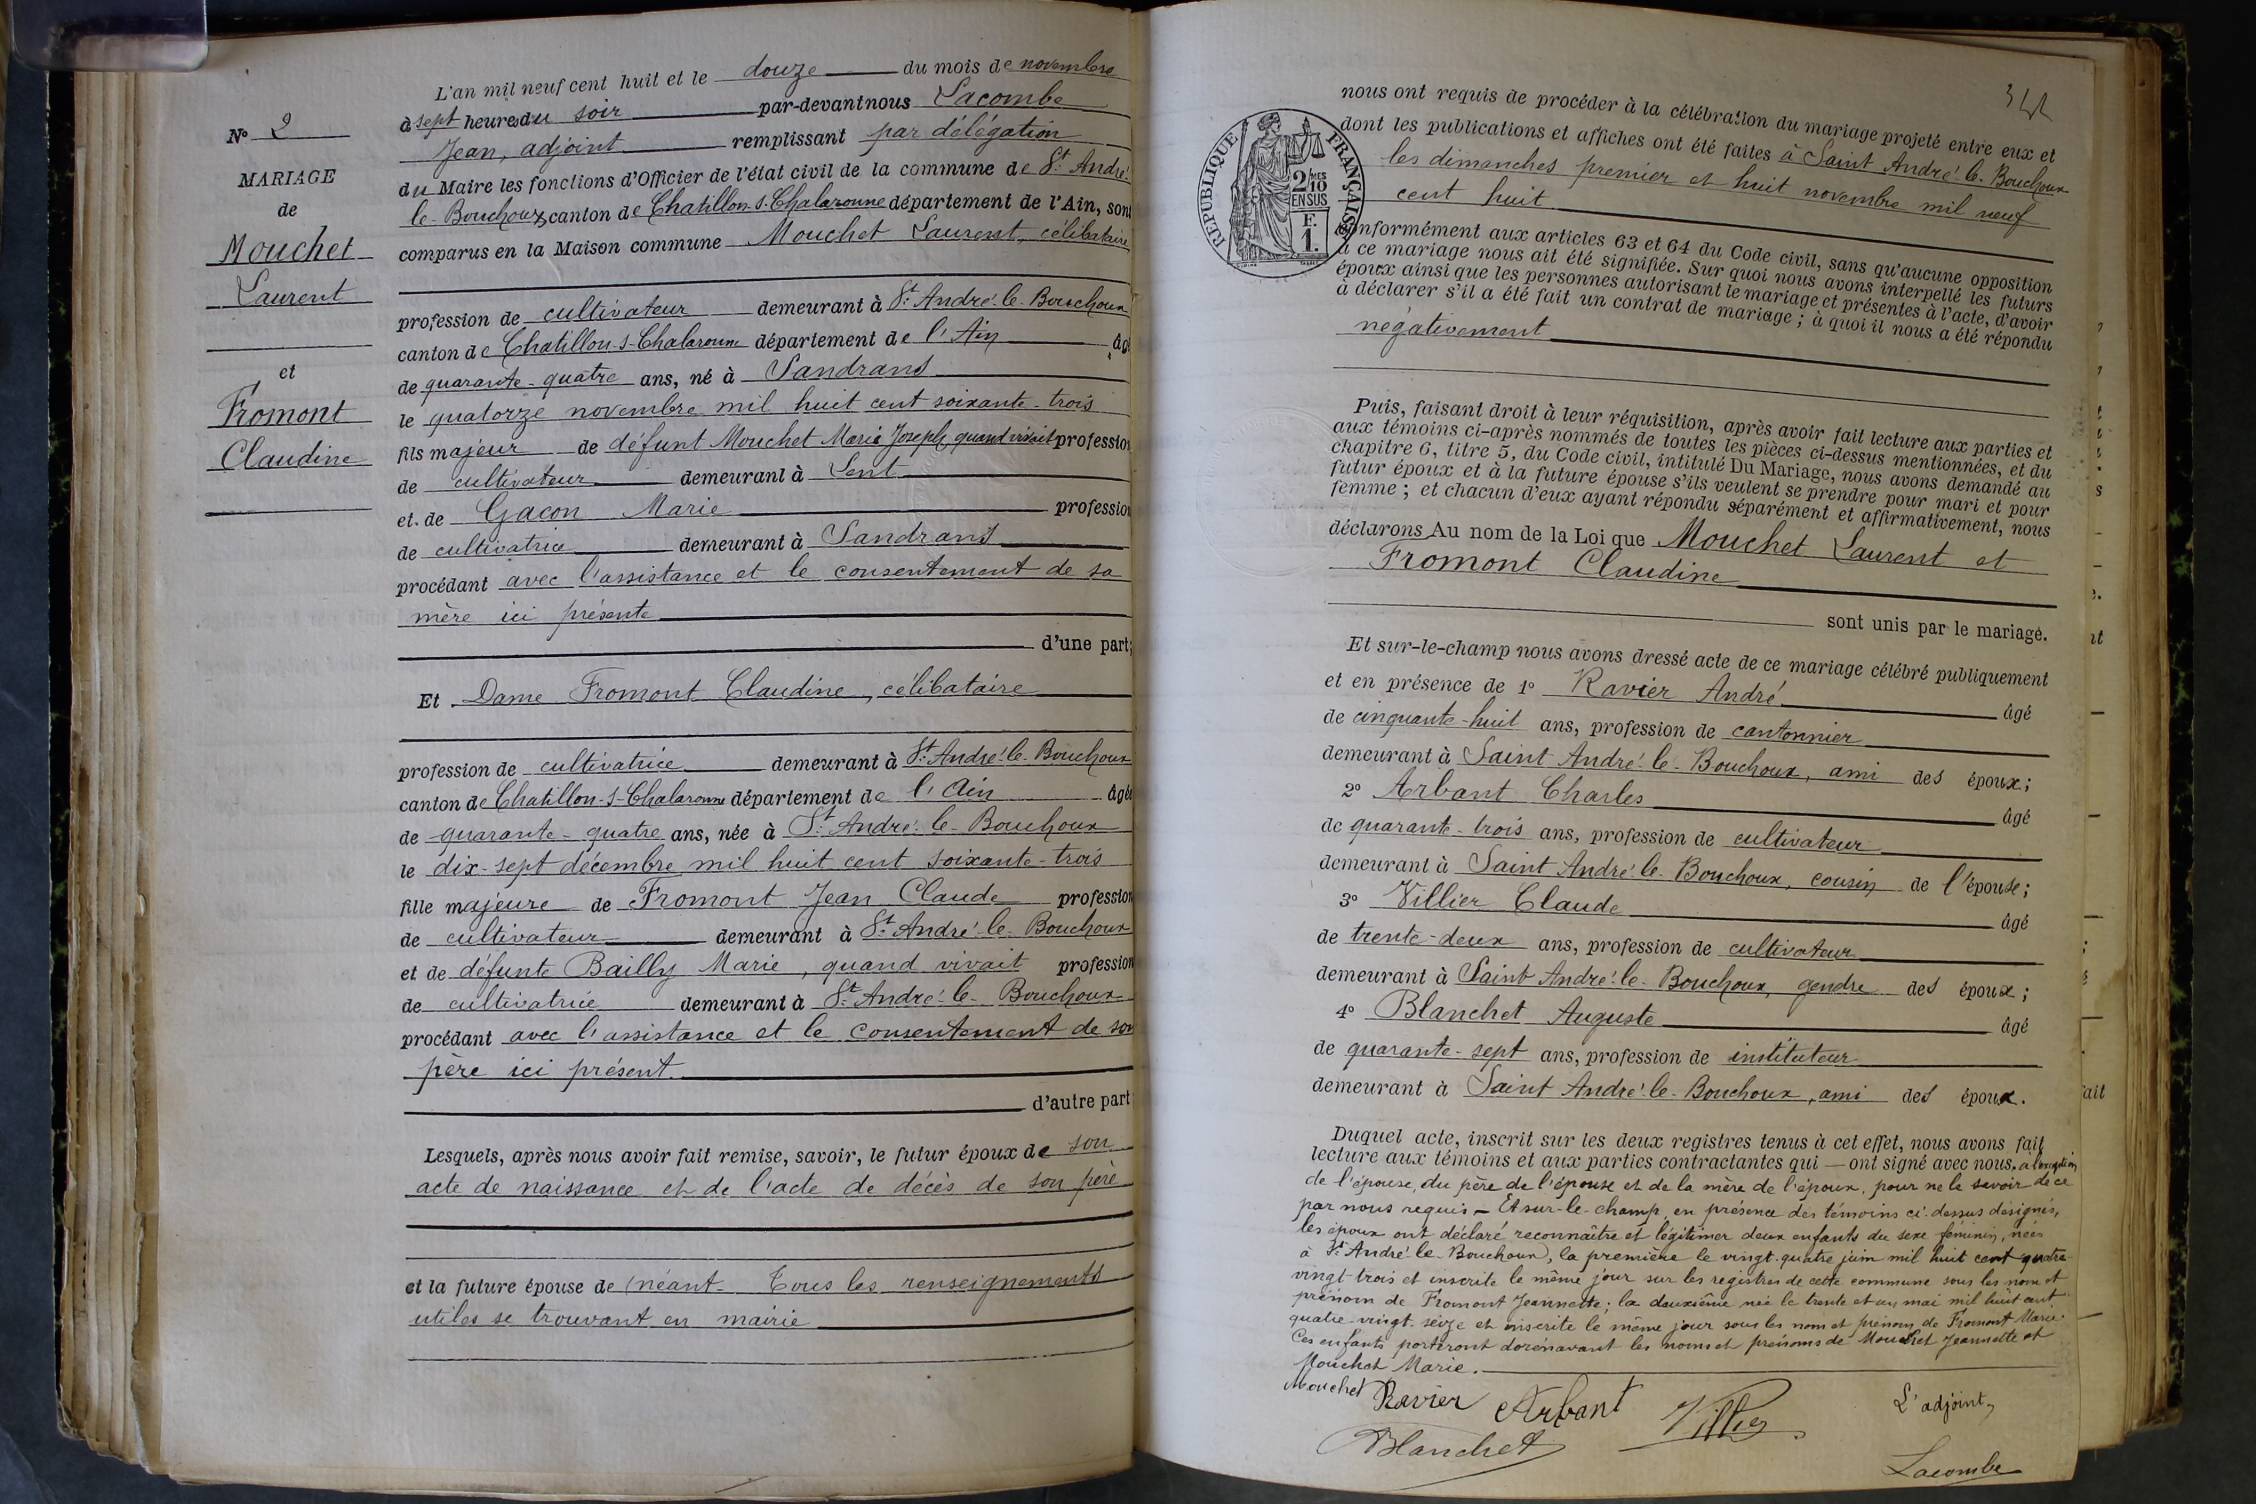 N° 2
MARIAGE
de
Mouchet
Laurent
et
Fromont
Claudine
L'an mil neuf cent huit et le douze du mois de novembre
à sept heures du soir par-devant nous Lacombe
Jean, adjoint remplissant par délégation
du Maire les fonctions d'Officier de l'état civil de la commune de St André-
le-Bouchoux, canton de Chatillon-s-Chalaronne département de l'Ain, sont
comparus en la Maison commune Mouchet Laurent, célibataire
profession de cultivateur demeurant à St André-le-Bouchoux
canton de Chatillon-s-Chalaronne département de l'Ain âgé
de quarante-quatre ans, né à Sandrans
le quatorze novembre mil huit cent soixante-trois
fils majeur de défunt Mouchet Marie Joseph, quand vivait profession
de cultivateur demeurant à Lent
et de Gacon Marie profession
de cultivatrice demeurant à Sandrans
procédant avec l'assistance et le consentement de sa
mère ici présente
d'une part;
Et Dame Fromont Claudine, célibataire
profession de cultivatrice demeurant à St André-le-Bouchoux
canton de Chatillon-s-Chalaronne département de l'Ain âgée
de quarante-quatre ans, née à St André-le-Bouchoux
le dix-sept décembre mil huit cent soixante-trois
fille majeure de Fromont Jean Claude profession
de cultivateur demeurant à St André-le-Bouchoux
et de défunte Bailly Marie, quand vivait profession
de cultivatrice demeurant à St André-le-Bouchoux
procédant avec l'assistance et le consentement de son
père ici présent.
d'autre part
Lesquels, après nous avoir fait remise, savoir, le futur époux de son
acte de naissance et de l'acte de décès de son père
et la future épouse de (néant- Tous les renseignements
utiles se trouvant en mairie
RÉPUBLIQUE FRANÇAISE
2/10MES
EN SUS
F.
1.
nous ont requis de procéder à la célébration du mariage projeté entre eux et
dont les publications et affiches ont été faites à Saint André-le-Bouchoux
les dimanches premier et huit novembre mil neuf
cent huit
conformément aux articles 63 et 64 du Code civil, sans qu'aucune opposition
à ce mariage nous ait été signifiée. Sur quoi nous avons interpellé les futurs
époux ainsi que les personnes autorisant le mariage et présentes à l'acte, d'avoir
à déclarer s'il a été fait un contrat de mariage; à quoi il nous a été répondu
négativement
Puis, faisant droit à leur réquisition, après avoir fait lecture aux parties et
aux témoins ci-après nommés de toutes les pièces ci-dessus mentionnées, et du
chapitre 6, titre 5, du Code civil, intitulé Du Mariage, nous avons demandé au
futur époux et à la future épouse s'ils veulent se prendre pour mari et pour
femme; et chacun d'eux ayant répondu séparément et affirmativement, nous
déclarons Au nom de la Loi que Mouchet Laurent et
Fromont Claudine
sont unis par le mariage.
Et sur-le-champ nous avons dressé acte de ce mariage célébré publiquement
et en présence de 1° Ravier André âgé
de cinquante-huit ans, profession de cantonnier
demeurant à Saint André-le-Bouchoux, ami des époux;
2° Arbant Charles âgé
de quarante-trois ans, profession de cultivateur
demeurant à Saint André-le-Bouchoux, cousin de l'épouse;
3° Villier Claude âgé
de trente-deux ans, profession de cultivateur
demeurant à Saint André-le-Bouchoux, gendre des époux;
4° Blanchet Auguste âgé
de quarante-sept ans, profession de instituteur
demeurant à Saint André-le-Bouchoux, ami des époux.
Duquel acte, inscrit sur les deux registres tenus à cet effet, nous avons fait
lecture aux témoins et aux parties contractantes qui — ont signé avec nous, à l'exception
de l'épouse, du père de l'épouse et de la mère de l'époux, pour ne le savoir de ce
par nous requis - Et sur-le-champ, en présence des témoins ci-dessus désignés,
les époux ont déclaré reconnaître et légitimer deux enfants du sexe féminin, nées
à St André-le-Bouchoux, la première le vingt-quatre juin mil huit cent quatre-
vingt-trois et inscrite le même jour sur les registres de cette commune sous les nom et
prénom de Fromont Jeannette; la deuxième née le trente et un mai mil huit cent
quatre-vingt-seize et inscrite le même jour sous les nom et prénom de Fromont Marie
Ces enfants porteront dorénavant les noms et prénoms de Mouchet Jeannette et
Mouchet Marie.
Mouchet Ravier Arbant Villier L'adjoint,
Blanchet Lacombe